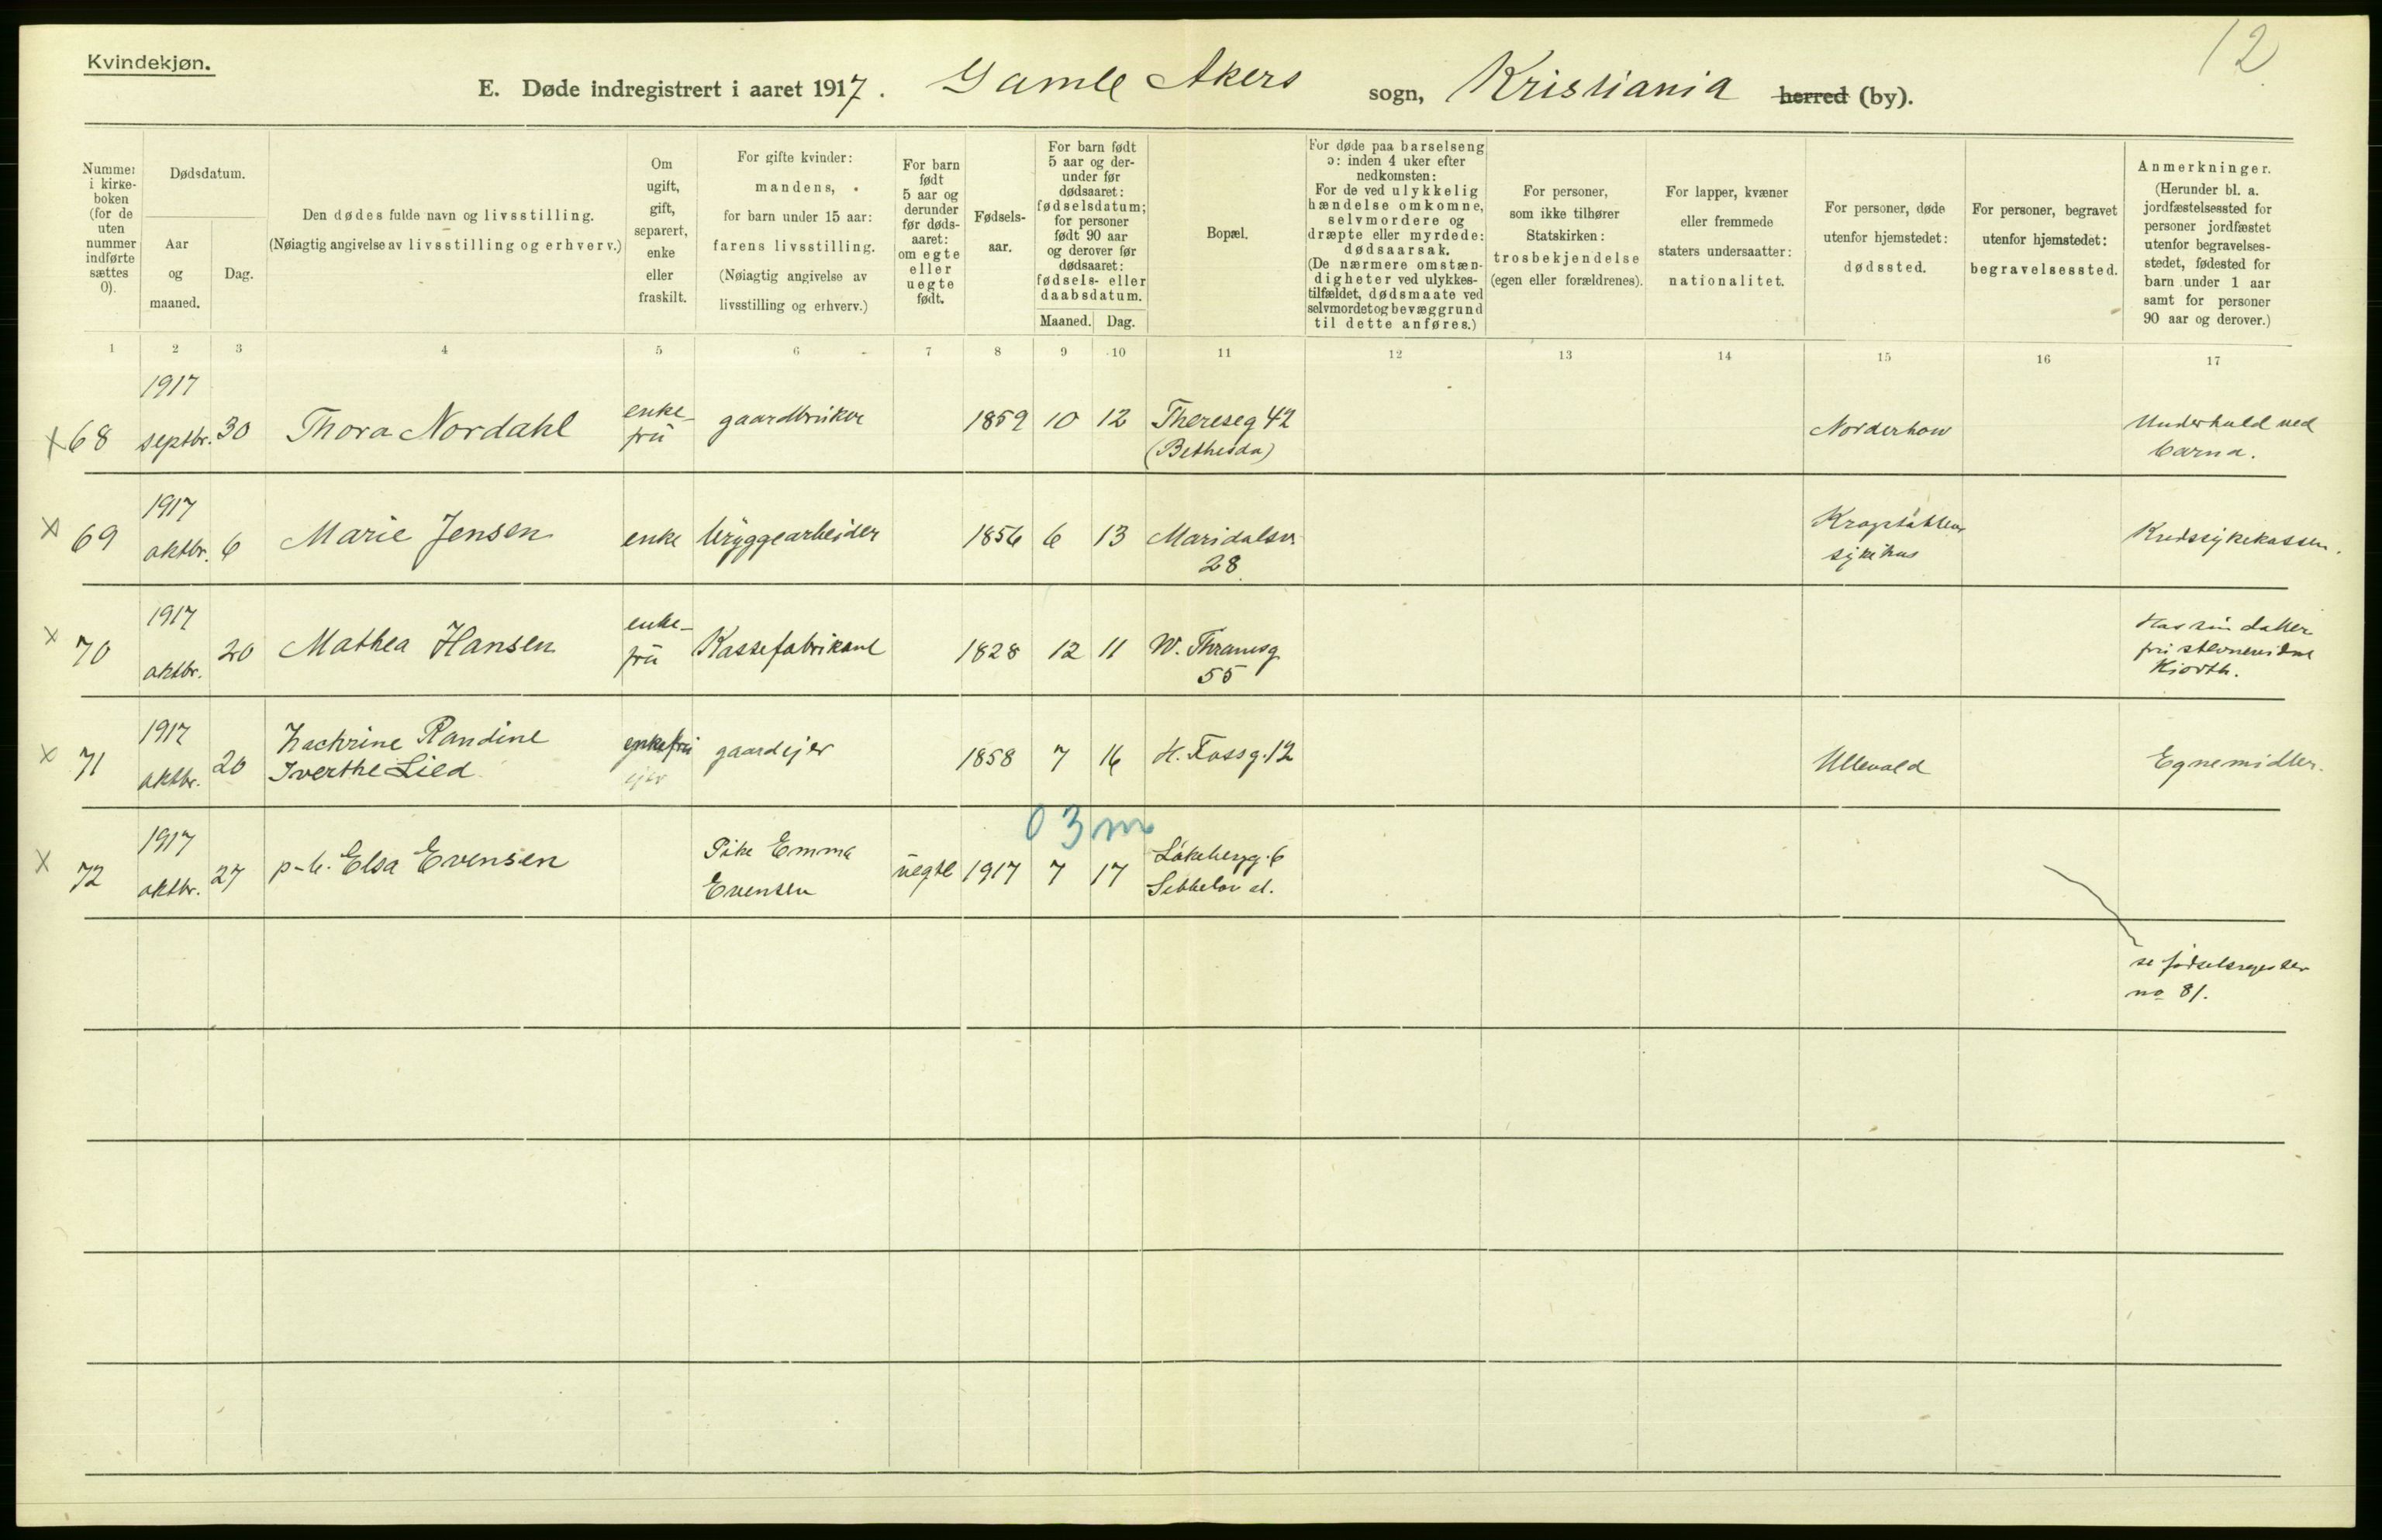 12
Kvindekjøn.
E. Døde indregistrert i aaret 1917. Gamle Akers sogn, Kristiania herred (by).
Nummer i kirkeboken (for de uten nummer indførte sættes 0).
Dødsdatum.
Aar og maaned.
Dag.
Den dødes fulde navn og livsstilling.
(Nøiagtig angivelse av livsstilling og erhverv.)
Om ugift, gift, separert, enke eller fraskilt.
For gifte kvinder: mandens, for barn under 15 aar: farens livsstilling. (Nøiagtig angivelse av livsstilling og erhverv.)
For barn født 5 aar og derunder før dødsaaret: om egte eller uegte født.
Fødselsaar.
For barn født 5 aar og derunder før dødsaaret: fødselsdatum; for personer født 90 aar og derover før dødsaaret: fødsels- eller daabsdatum.
Maaned. Dag.
Bopæl.
For døde paa barselseng ɔ: inden 4 uker efter nedkomsten: For de ved ulykkelig hændelse omkomne, selvmordere og dræpte eller myrdede: dødsaarsak. (De nærmere omstændigheter ved ulykkestilfældet, dødsmaate ved selvmordet og bevæggrund til dette anføres.)
For personer, som ikke tilhører Statskirken: trosbekjendelse (egen eller forældrenes).
For lapper, kvæner eller fremmede staters undersaatter: nationalitet.
For personer, døde utenfor hjemstedet: dødssted.
For personer, begravet utenfor hjemstedet: begravelsessted.
Anmerkninger. (Herunder bl. a. jordfæstelsessted for personer jordfæstet utenfor begravelsesstedet, fødested for barn under 1 aar samt for personer 90 aar og derover.)
1 2 3 4 5 6 7 8 9 10 11 12 13 14 15 16 17
x 68 1917 septbr. 30 Thora Nordahl enkefrü gaardbruker 1859 10 12 Thereseg 42 (Bethesda) Norderhov Underhold ved barna.
x 69 1917 oktbr. 6 Marie Jensen enke bryggearbeider 1856 6 13 Maridalsv. 28 sykehus Kredssykekassen.
x 70 1917 oktbr. 20 Mathea Hansen enkefrü Kassefabrikant 1828 12 11 W. Thranesg 55 Hos sin datter Kiorth.
x 71 1917 oktbr. 20 Kachrine Randine Iverthe Lied enkefrü ejer gaardejer 1858 7 16 H. Fossg. 12 Ullevold Egne midler.
03m
x 72 1917 oktbr. 27 p-b. Elsa Evensen Pike Emma Evensen üegte 1917 7 17 Løkebergg. 6
se fødselsregister
no 81.